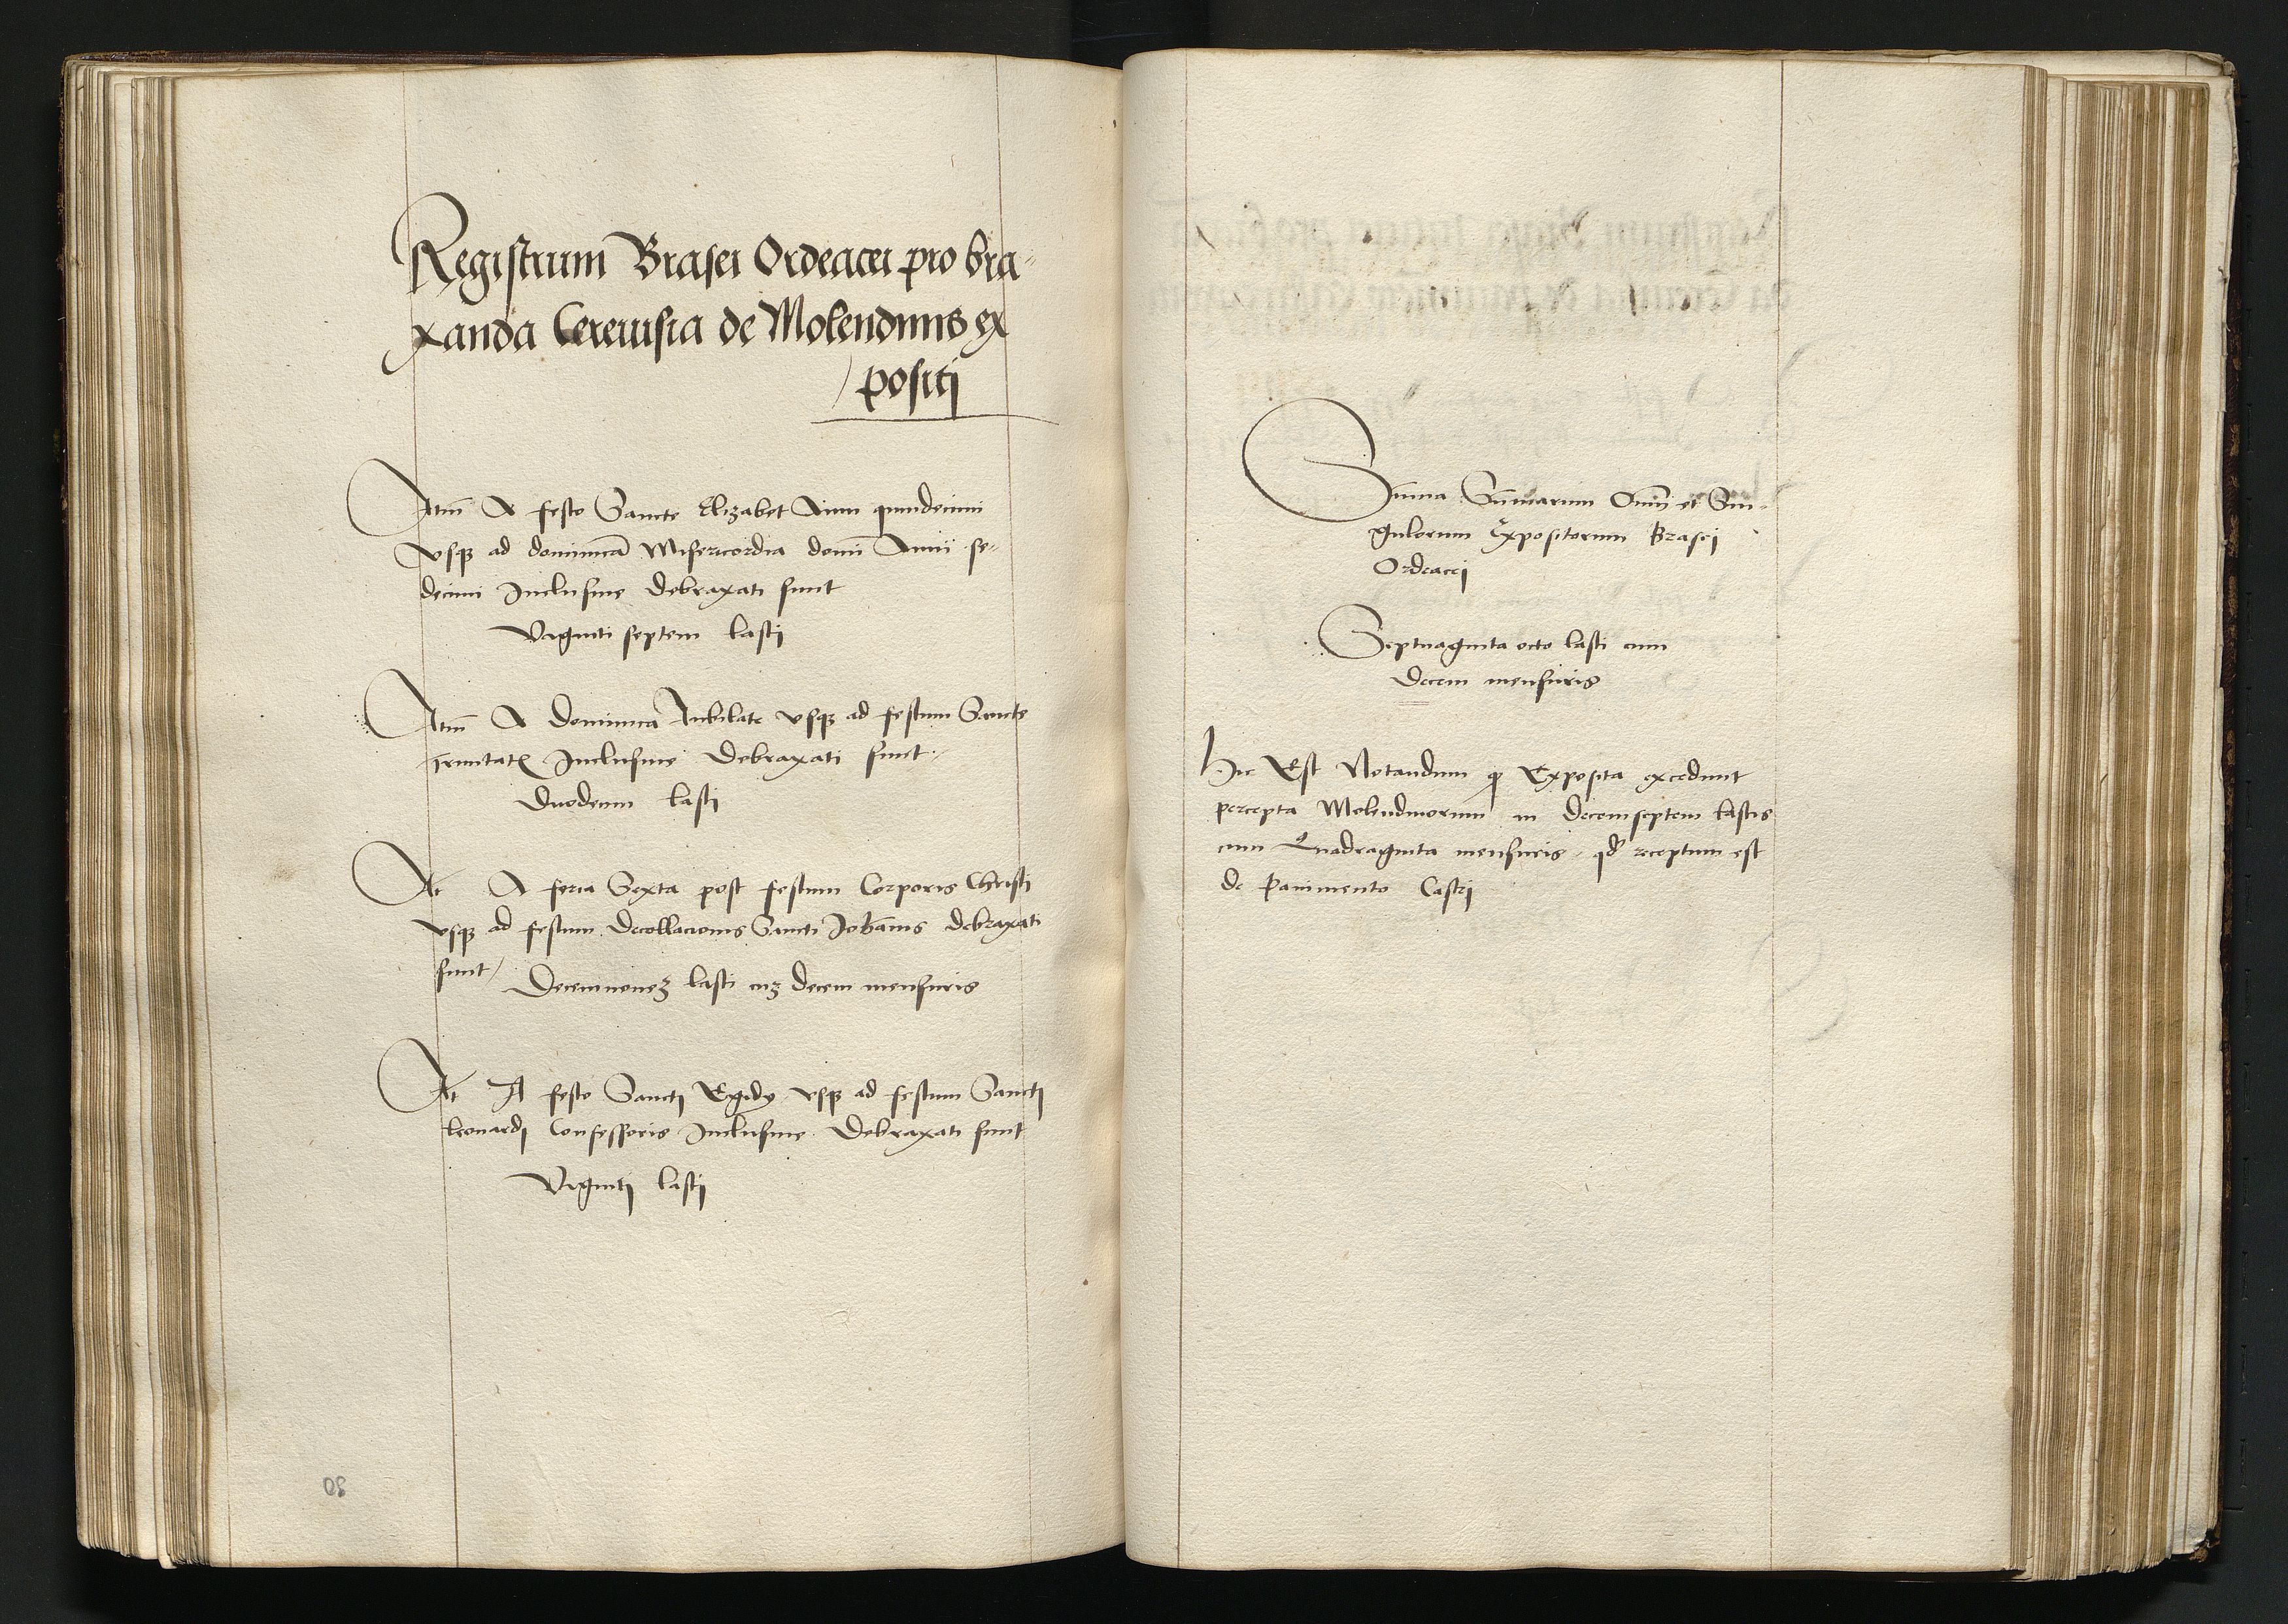 Registrum Brasei Ordeacei pro bra-
xanda Cereuisia de Molendinis ex
positi
Itm̄ A festo Sancte Elizabet Anni quindecimi
vsqꝫ ad dominicā Misericordia domi̅ Annii se-
decimi Inclusiue debraxati sunt
Viginti septem lasti
Itm̄ A Dominica Iubilate vsqꝫ ad festum Sancte
Trinitatꝭ Inclusiue Debraxati sunt
Duodecim lasti
It A feria Sexta post festum Corporis Christi
vsqꝫ ad festum Decollacionis Sancti Joha̅nis debraxati
sunt/
Decemnoueꝫ lasti cuꝫ decem mensuris
It A festo Sancti Egidy vsqꝫ ad festum Sancti
leonardi Confessoris Inclusiue Debraxati sunt
Viginti lasti
Su̅ma Su̅marum Om̅i et Sin-
gulorum Expositorum Brasei
Ordeacei
Septuaginta octo lasti cum
decem mensuris
Hic Est Notandum ꝙ Exposita excedunt
percepta Molendinorum in decemseptem lastis
cum Quadraginta mensuris qd̓ receptum est
de Pauimento Castri
80